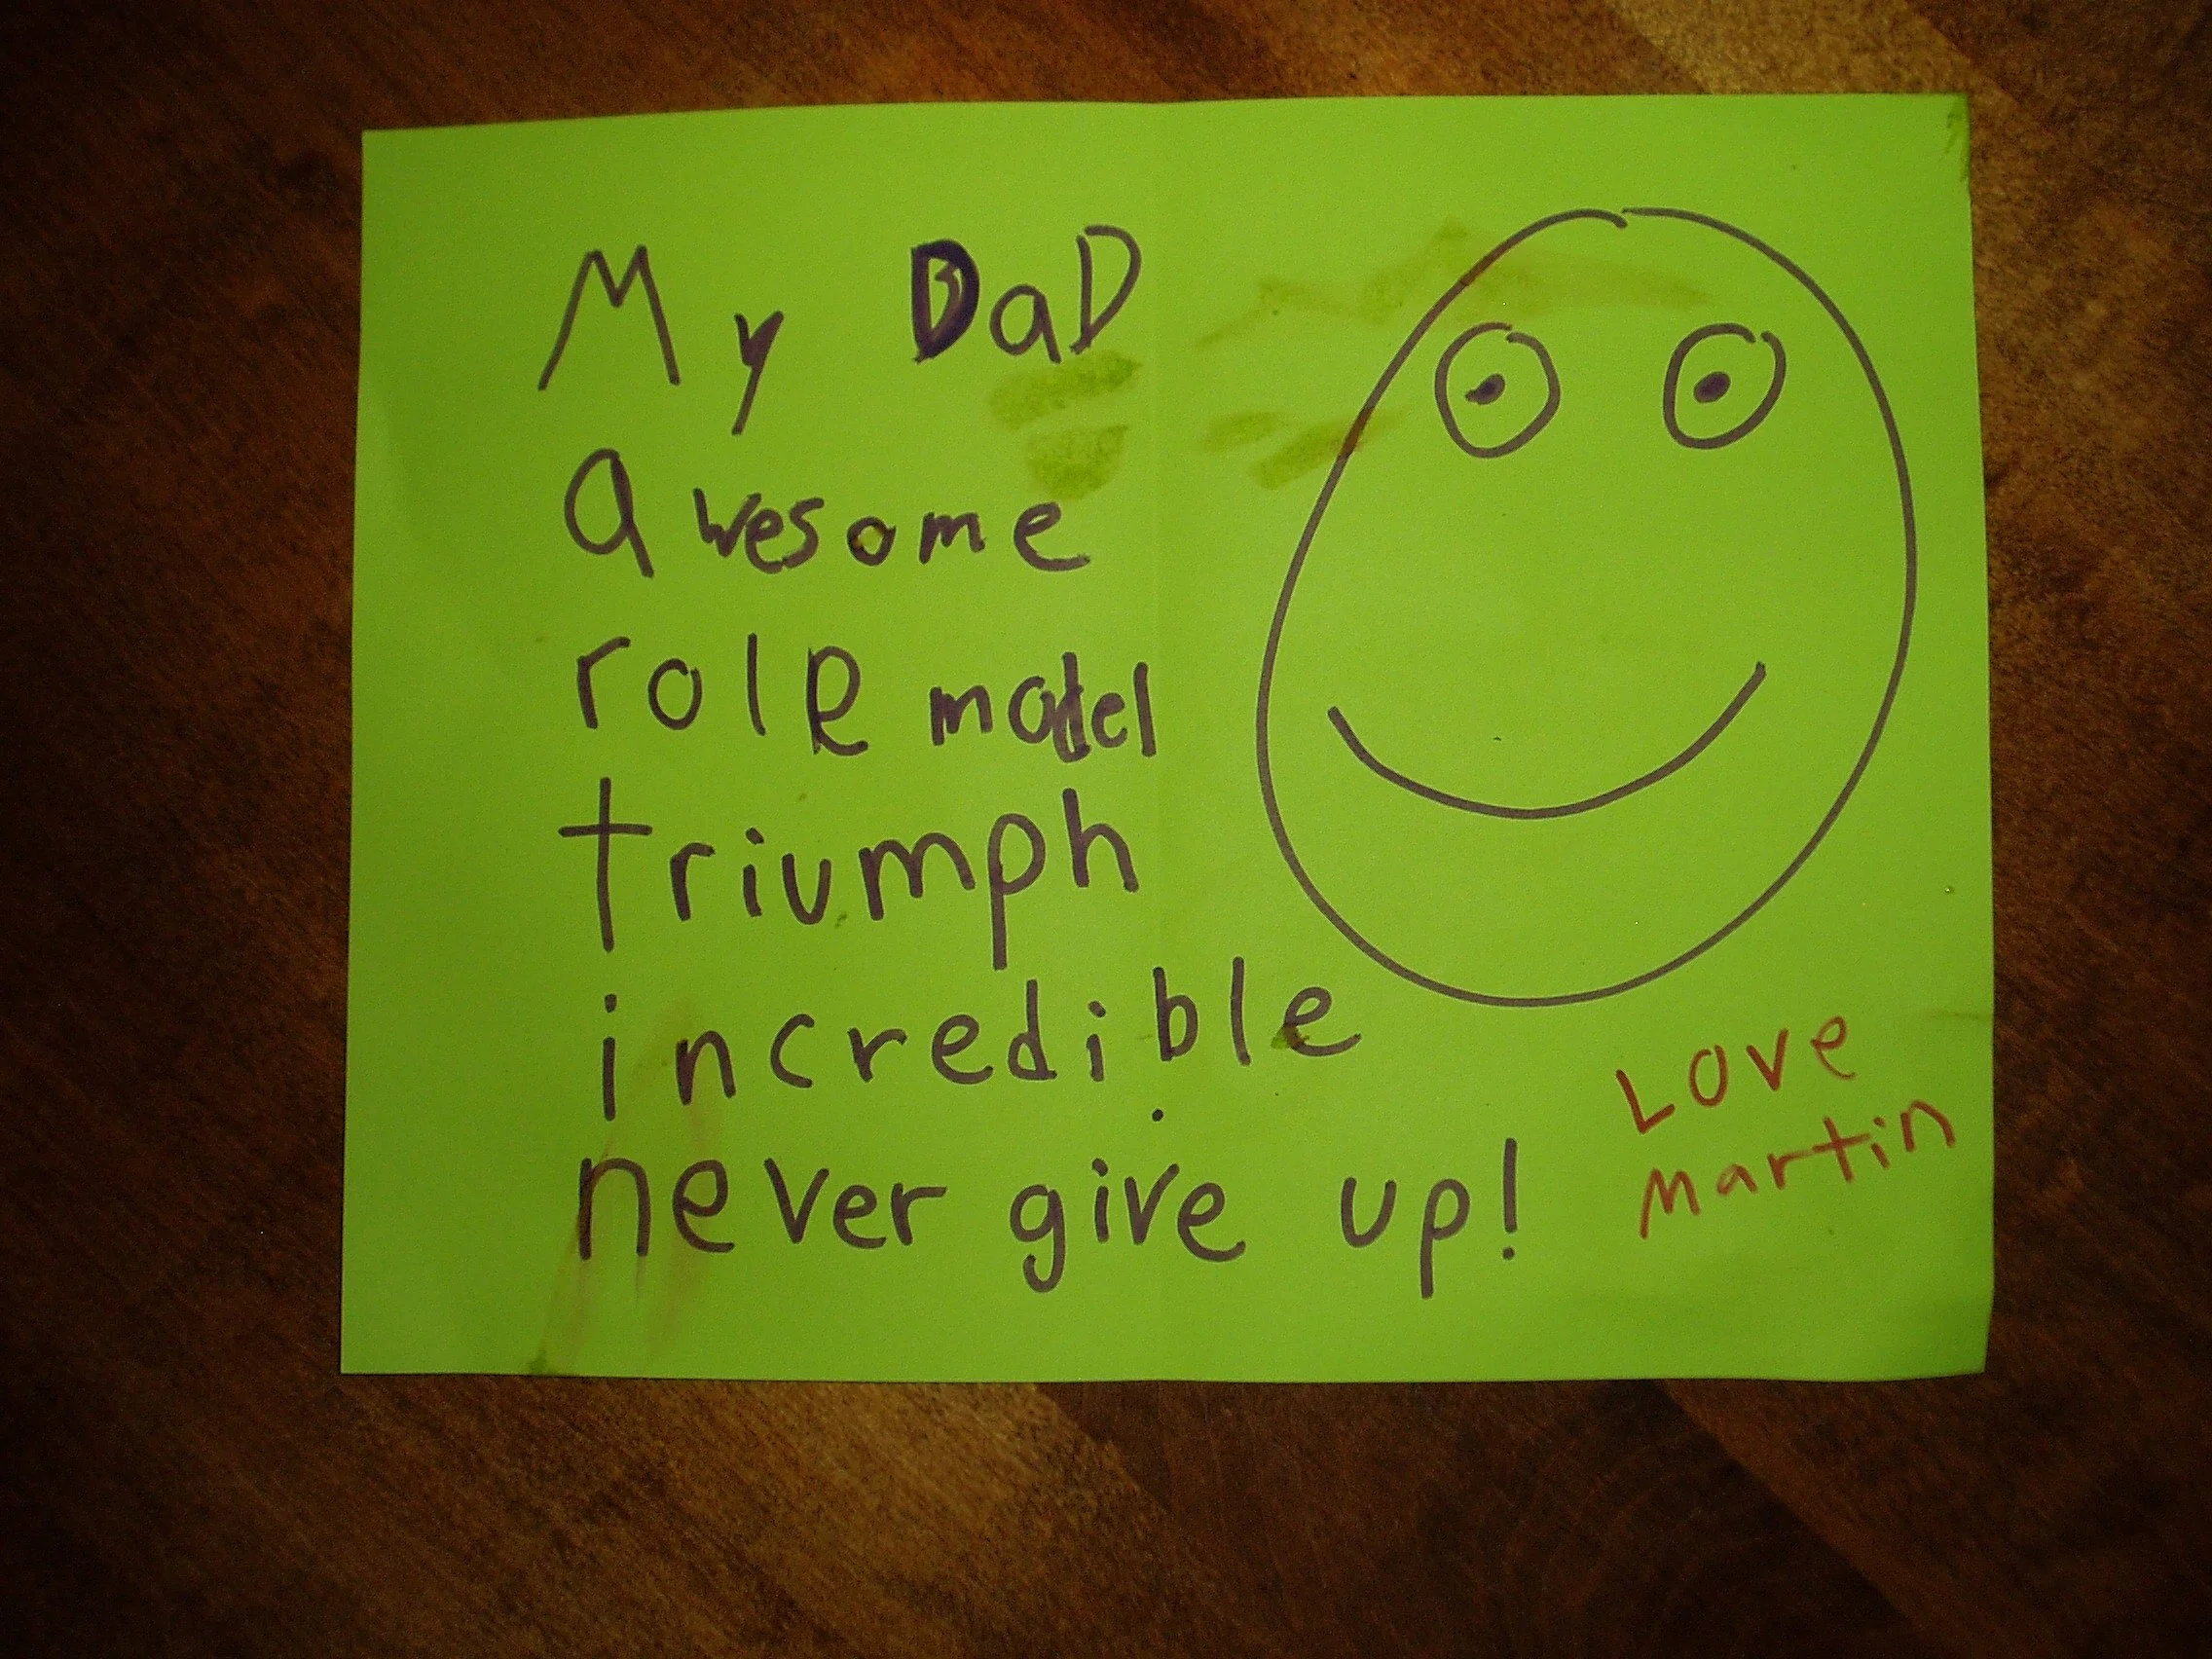 My DaD
awesome
role model
triumph
incredible
never give up!
Love
Martin